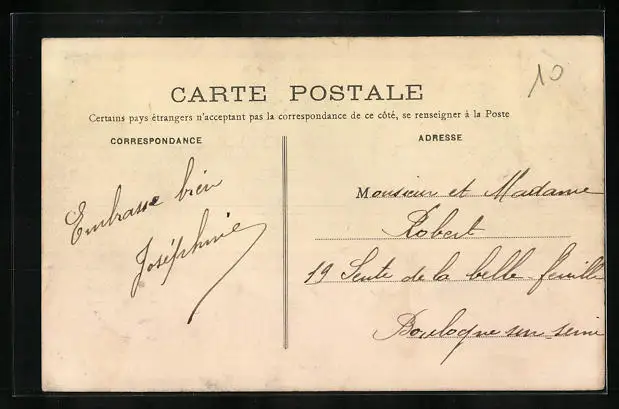 10
CARTE POSTALE
Certains pays étrangers n'acceptant pas la correspondance de ce côté, se renseigner à la Poste
CORRESPONDANCE
Embrasse bien
Joséphine
ADRESSE
Monsieur et Madame
Robert
19 Sente de la belle feuille
Boulogne sur seine